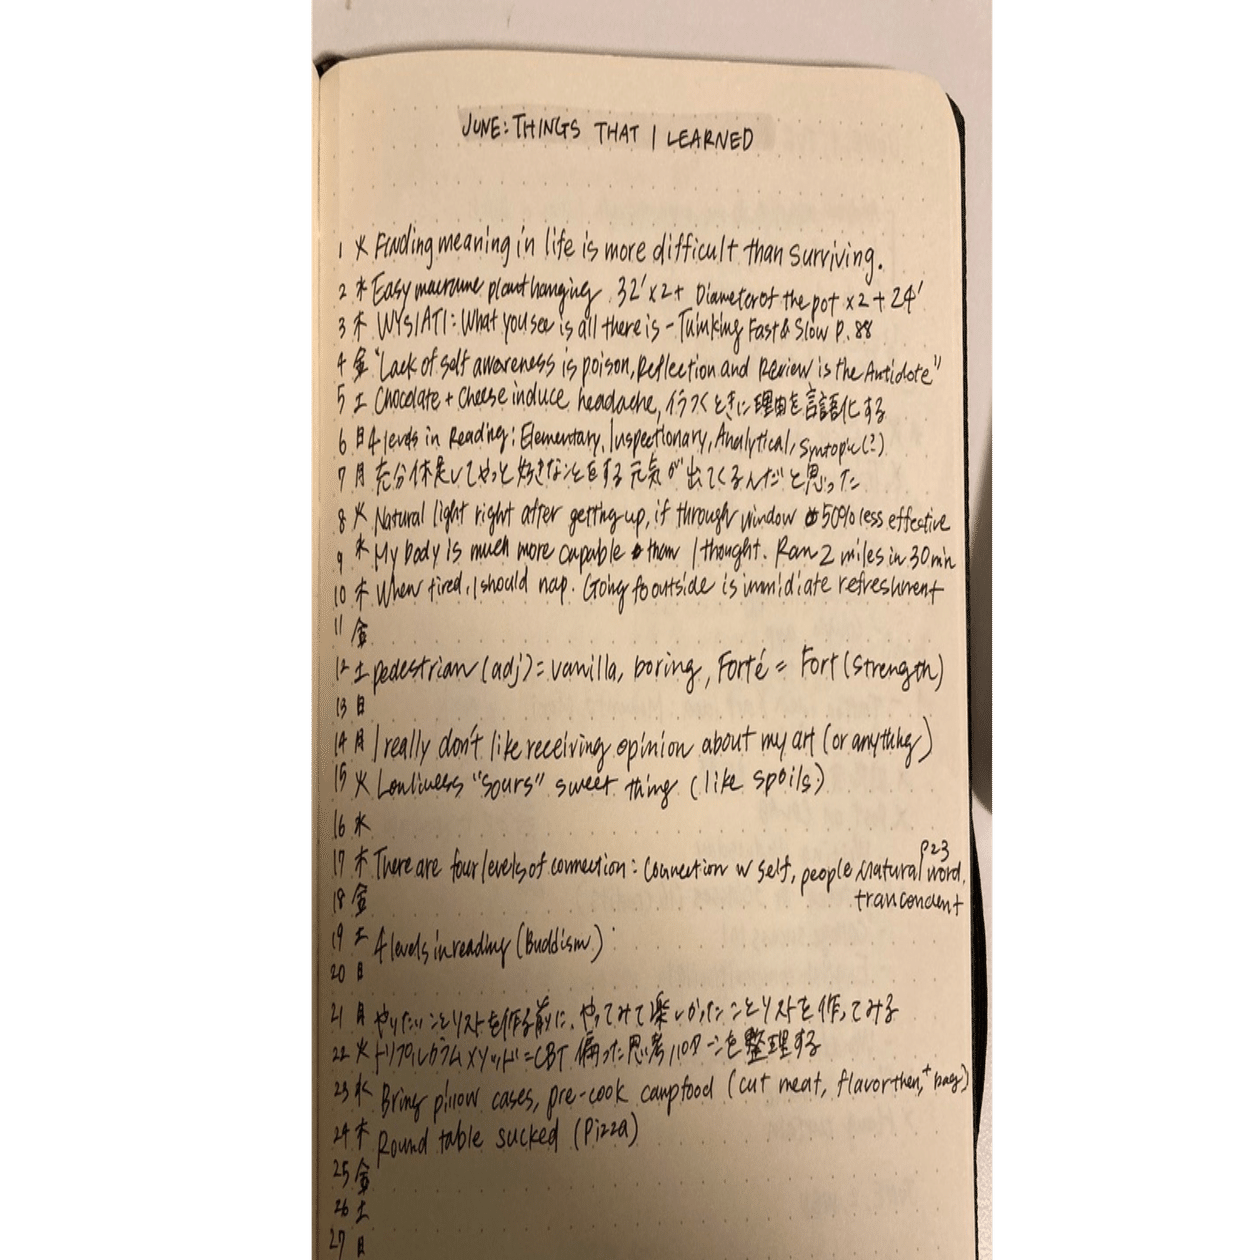 JUNE: THINGS THAT I LEARNED
1 火 Finding meaning in life is more difficult than surviving.
2 水 Easy macrame plant hanging 32' x2 + Diameter of the pot x2 + 24'
3 木 WYSIATI: What you see is all there is - Tuinking Fast & Slow P. 88
4 金 "Lack of self awareness is poison, Reflection and Review is the Antidote"
5 土 Chocolate + Cheese induce headache, イラつくときに理由を言語化する
6 日 4 levels in Reading: Elementary, Inspectionary, Analytical, Syntopic(?)
7 月 充分休息してやっと好きなことをする元気が出てくるんだと思った
8 火 Natural light right after getting up, if through window 50% less effective
9 水 My body is much more capable than I thought. Ran 2 miles in 30 min
10 木 When tired, I should nap. Going to outside is immidiate refreshment
11 金
12 土 pedestrian (adj) = vanilla, boring, Forté = Fort (strength)
13 日
14 月 I really don't like receiving opinion about my art (or anything)
15 火 Lonliness "sours" sweet thing (like spoils)
16 水
17 木 There are four levels of connection: Connection w self, people Natural word, P23
18 金 tranCondent
19 土 4 levels in reading (Buddism)
20 日
21 月 やりたいことリストを作る前に、やってみて楽しかったことリストを作ってみる
22 火 トリプルカラムメソッド = CBT 偏った思考パターンを整理する
23 水 Bring pillow cases, pre-cook campfood (cut meat, flavor then, + bag)
24 木 Round table sucked (Pizza)
25 金
26 土
27 日